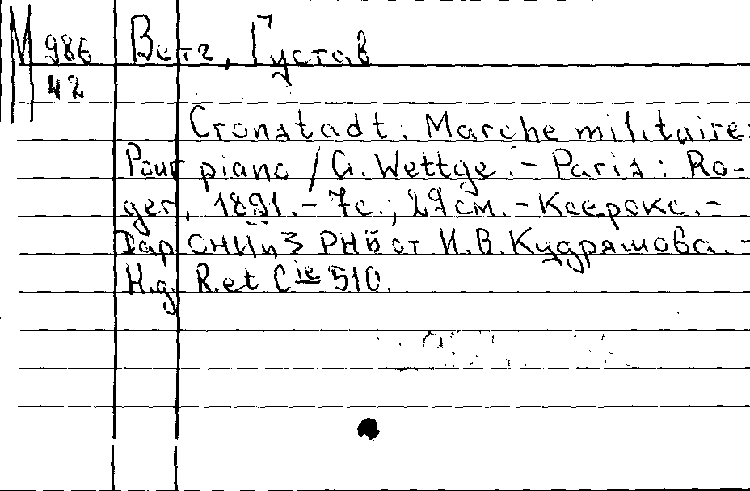 М 986
42
Ветг, Густав
Cronstadt: Marche militaire:
Pour piano / G. Wettge. - Paris: Ro-
ger, 1891. - 7с.; 29 см. - Ксерокс. -
Дар СНИиЗ РНБ от И.В. Кудряшова. -
Н.д. R. et Cie 510.